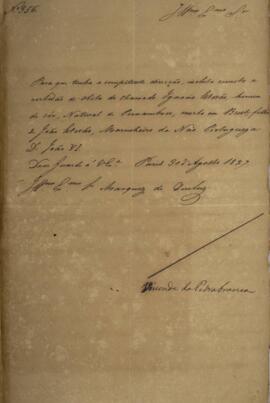 Nº 956.
Illmo Exmo Snr
Para que tenha a competente direcção, incluso remetto a
certidão de obito do chamado Ignacio, homem
de côr, Natural de Pernambuco, morto em Brest, filho
de João, Marinheiro da Náo Portugueza
D. João VI.
Deos Guarde á V. Exª Paris 30 d'Agosto 1827.
Illmo Exmo Sr Marquez de Queluz
Visconde da Pedra branca